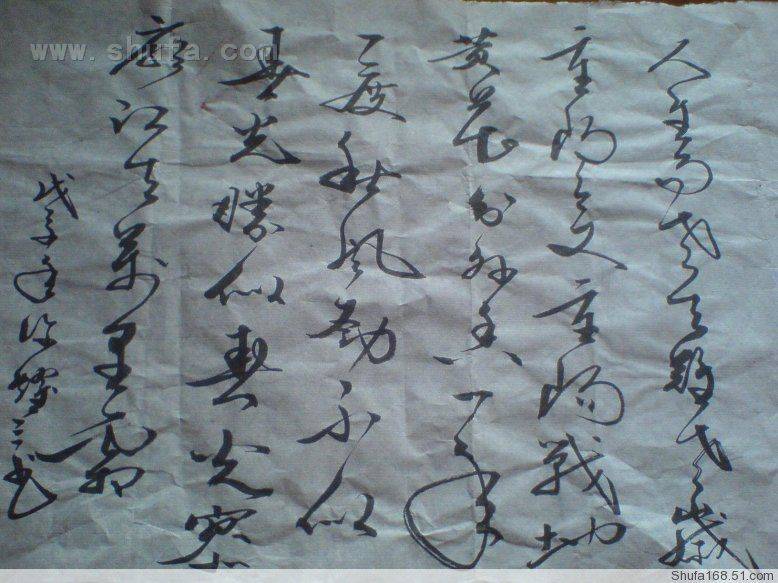 www.shufa.com
人生易老天難老歲
重陽今又重陽戰地
黄花分外香一年
一度秋風勁不似
春光勝似春光寥
廓江天萬里霜
戊子年徐三书
Shufa168.51.com